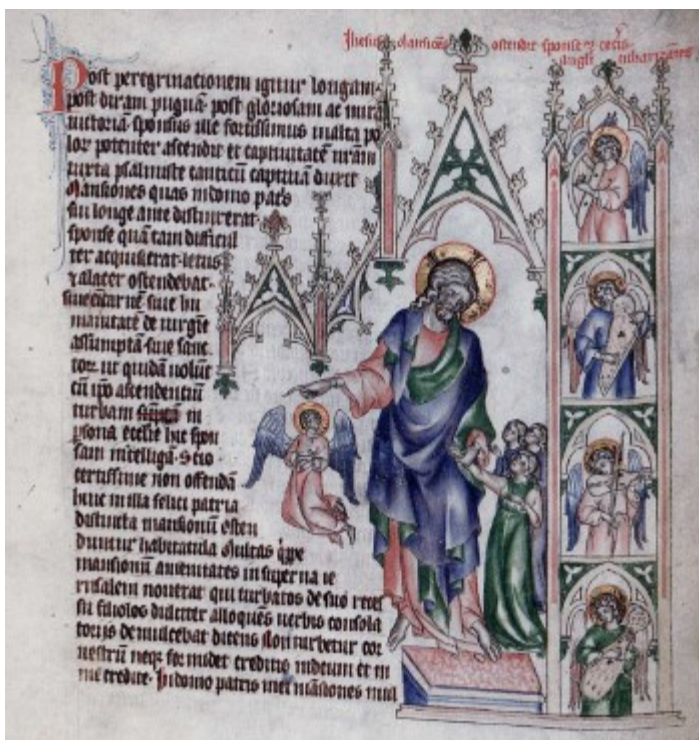 Ihesus mansiones ostendit sponse
angeli
Post peregrinacionem igitur longam
post diram pugnā post gloriosam ac mirā
victoriā sponsus ille fortissimus milia po
lor potenter ascendit et captiuitatē nrām
iuxta psalmiste canticū captiuā duxit
Mansiones quas in domo patris
sui longe ante distinxerat
sponse quā tam difficul
ter acquisierat letus
& alacer ostendebat
siue eciā carnē siue hu
manitatē de virgine
assumptā siue sanc
toꝝ ut quidā uolūt
cū ipo ascendentiū
turbam in
psona ecclie hic spon
sam intelligā Scio
certissime non offendā
huic in illa felici patria
distincta mansionū osten
duntur habitacula Multas qippe
mansionū amenitates in superna ie
rusalem nouerat qui turbatos de suo recel
su filiolos dulciter alloquēs uerbis consola
torijs demulcebat dicens Non turbetur cor
uestrū neqꝫ formidet creditis in deum et in
me credite. In domo patris mei māsiones mul